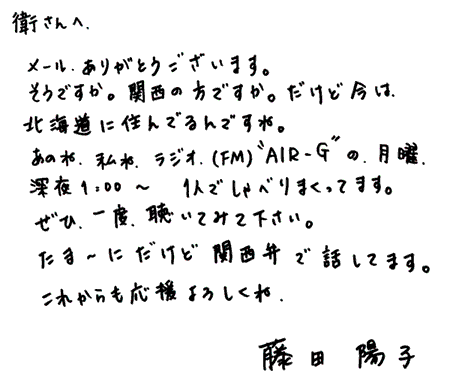 衛さんへ.
メール.ありがとうございます。
そうですか。関西の方ですか。だけど今は、
北海道に住んでるんですね。
あのね、私ね、ラジオ.(FM)“AIR-G”の、月曜、
深夜1:00〜 1人でしゃべりまくってます。
ぜひ、一度、聴いてみて下さい。
たま〜にだけど関西弁で話してます。
これからも応援よろしくね.
藤田陽子